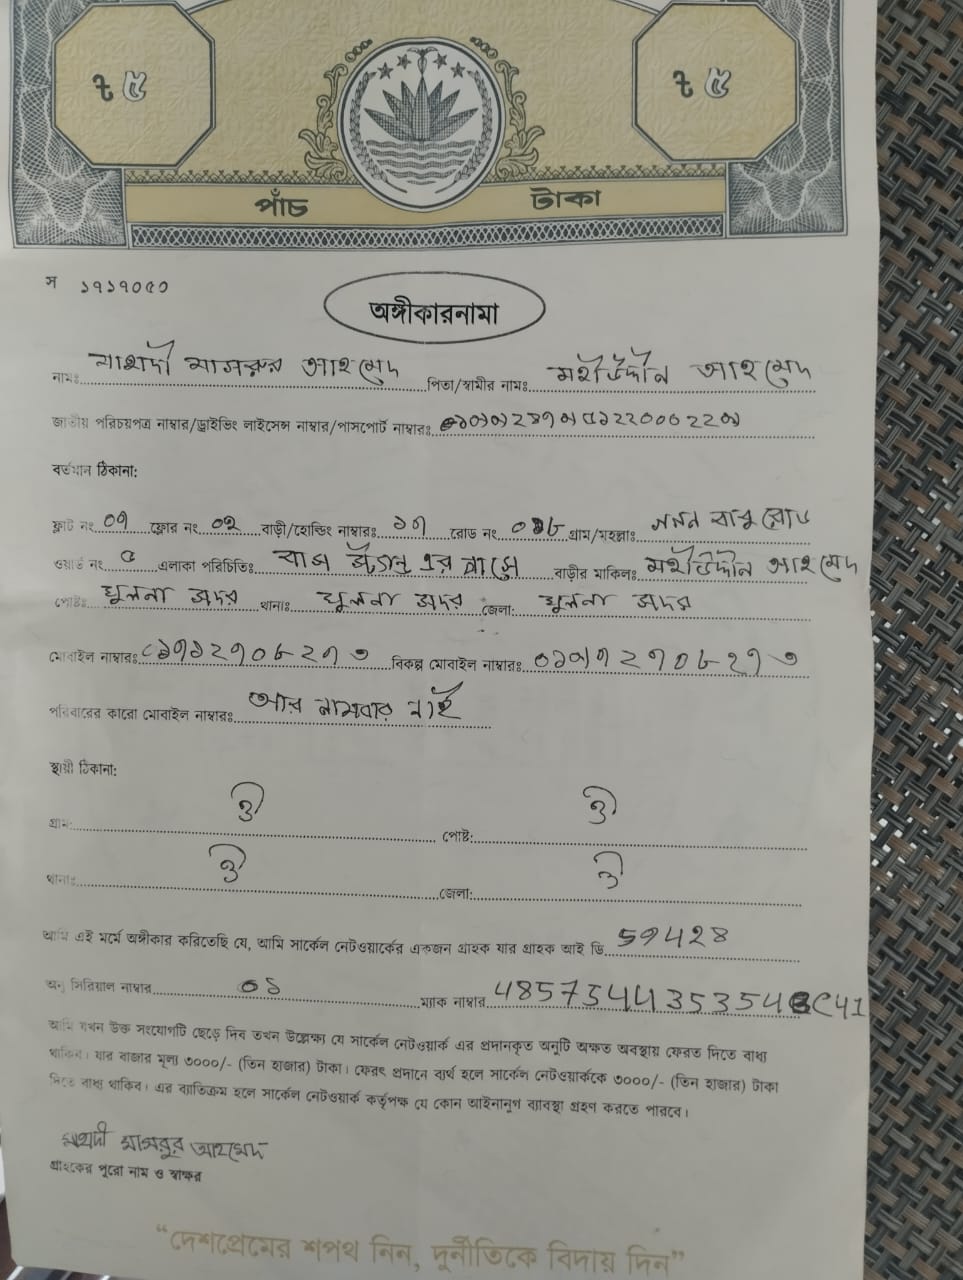 ৳ ৫ ৳ ৫
পাঁচ টাকা
স ১৭১৭০৫০
অঙ্গীকারনামা
নামঃ মাহদী মাসরুর আহমেদ পিতা/স্বামীর নামঃ মহীউদ্দীন আহমেদ
জাতীয় পরিচয়পত্র নাম্বার/ড্রাইভিং লাইসেন্স নাম্বার/পাসপোর্ট নাম্বারঃ
বর্তমান ঠিকানা:
ফ্লাট নং ০৭ ফ্লোর নং ০২ বাড়ী/হোল্ডিং নাম্বারঃ ১৭ রোড নং গ্রাম/মহল্লাঃ বাবু রোড
ওয়ার্ড নং এলাকা পরিচিতিঃ এর পাসে বাড়ীর মালিকঃ মহীউদ্দীন আহমেদ
পোষ্টঃ খুলনা সদর থানাঃ খুলনা সদর জেলা: খুলনা সদর
মোবাইল নাম্বারঃ বিকল্প মোবাইল নাম্বারঃ
পরিবারের কারো মোবাইল নাম্বারঃ আর নামবার নাই
স্থায়ী ঠিকানা:
গ্রাম: ঐ পোষ্ট: ঐ
থানাঃ ঐ জেলা: ঐ
আমি এই মর্মে অঙ্গীকার করিতেছি যে, আমি সার্কেল নেটওয়ার্কের একজন গ্রাহক যার গ্রাহক আই ডি
অনু সিরিয়াল নাম্বার ০১ ম্যাক নাম্বার
আমি যখন উক্ত সংযোগটি ছেড়ে দিব তখন উল্লেক্ষ্য যে সার্কেল নেটওয়ার্ক এর প্রদানকৃত অনুটি অক্ষত অবস্থায় ফেরত দিতে বাধ্য
থাকিব। যার বাজার মূল্য ৩০০০/- (তিন হাজার) টাকা। ফেরৎ প্রদানে ব্যর্থ হলে সার্কেল নেটওয়ার্ককে ৩০০০/- (তিন হাজার) টাকা
দিতে বাধ্য থাকিব। এর ব্যাতিক্রম হলে সার্কেল নেটওয়ার্ক কর্তৃপক্ষ যে কোন আইনানুগ ব্যাবস্থা গ্রহণ করতে পারবে।
মাহদী মাসরুর আহমেদ
গ্রাহকের পুরো নাম ও স্বাক্ষর
“দেশপ্রেমের শপথ নিন, দুর্নীতিকে বিদায় দিন”